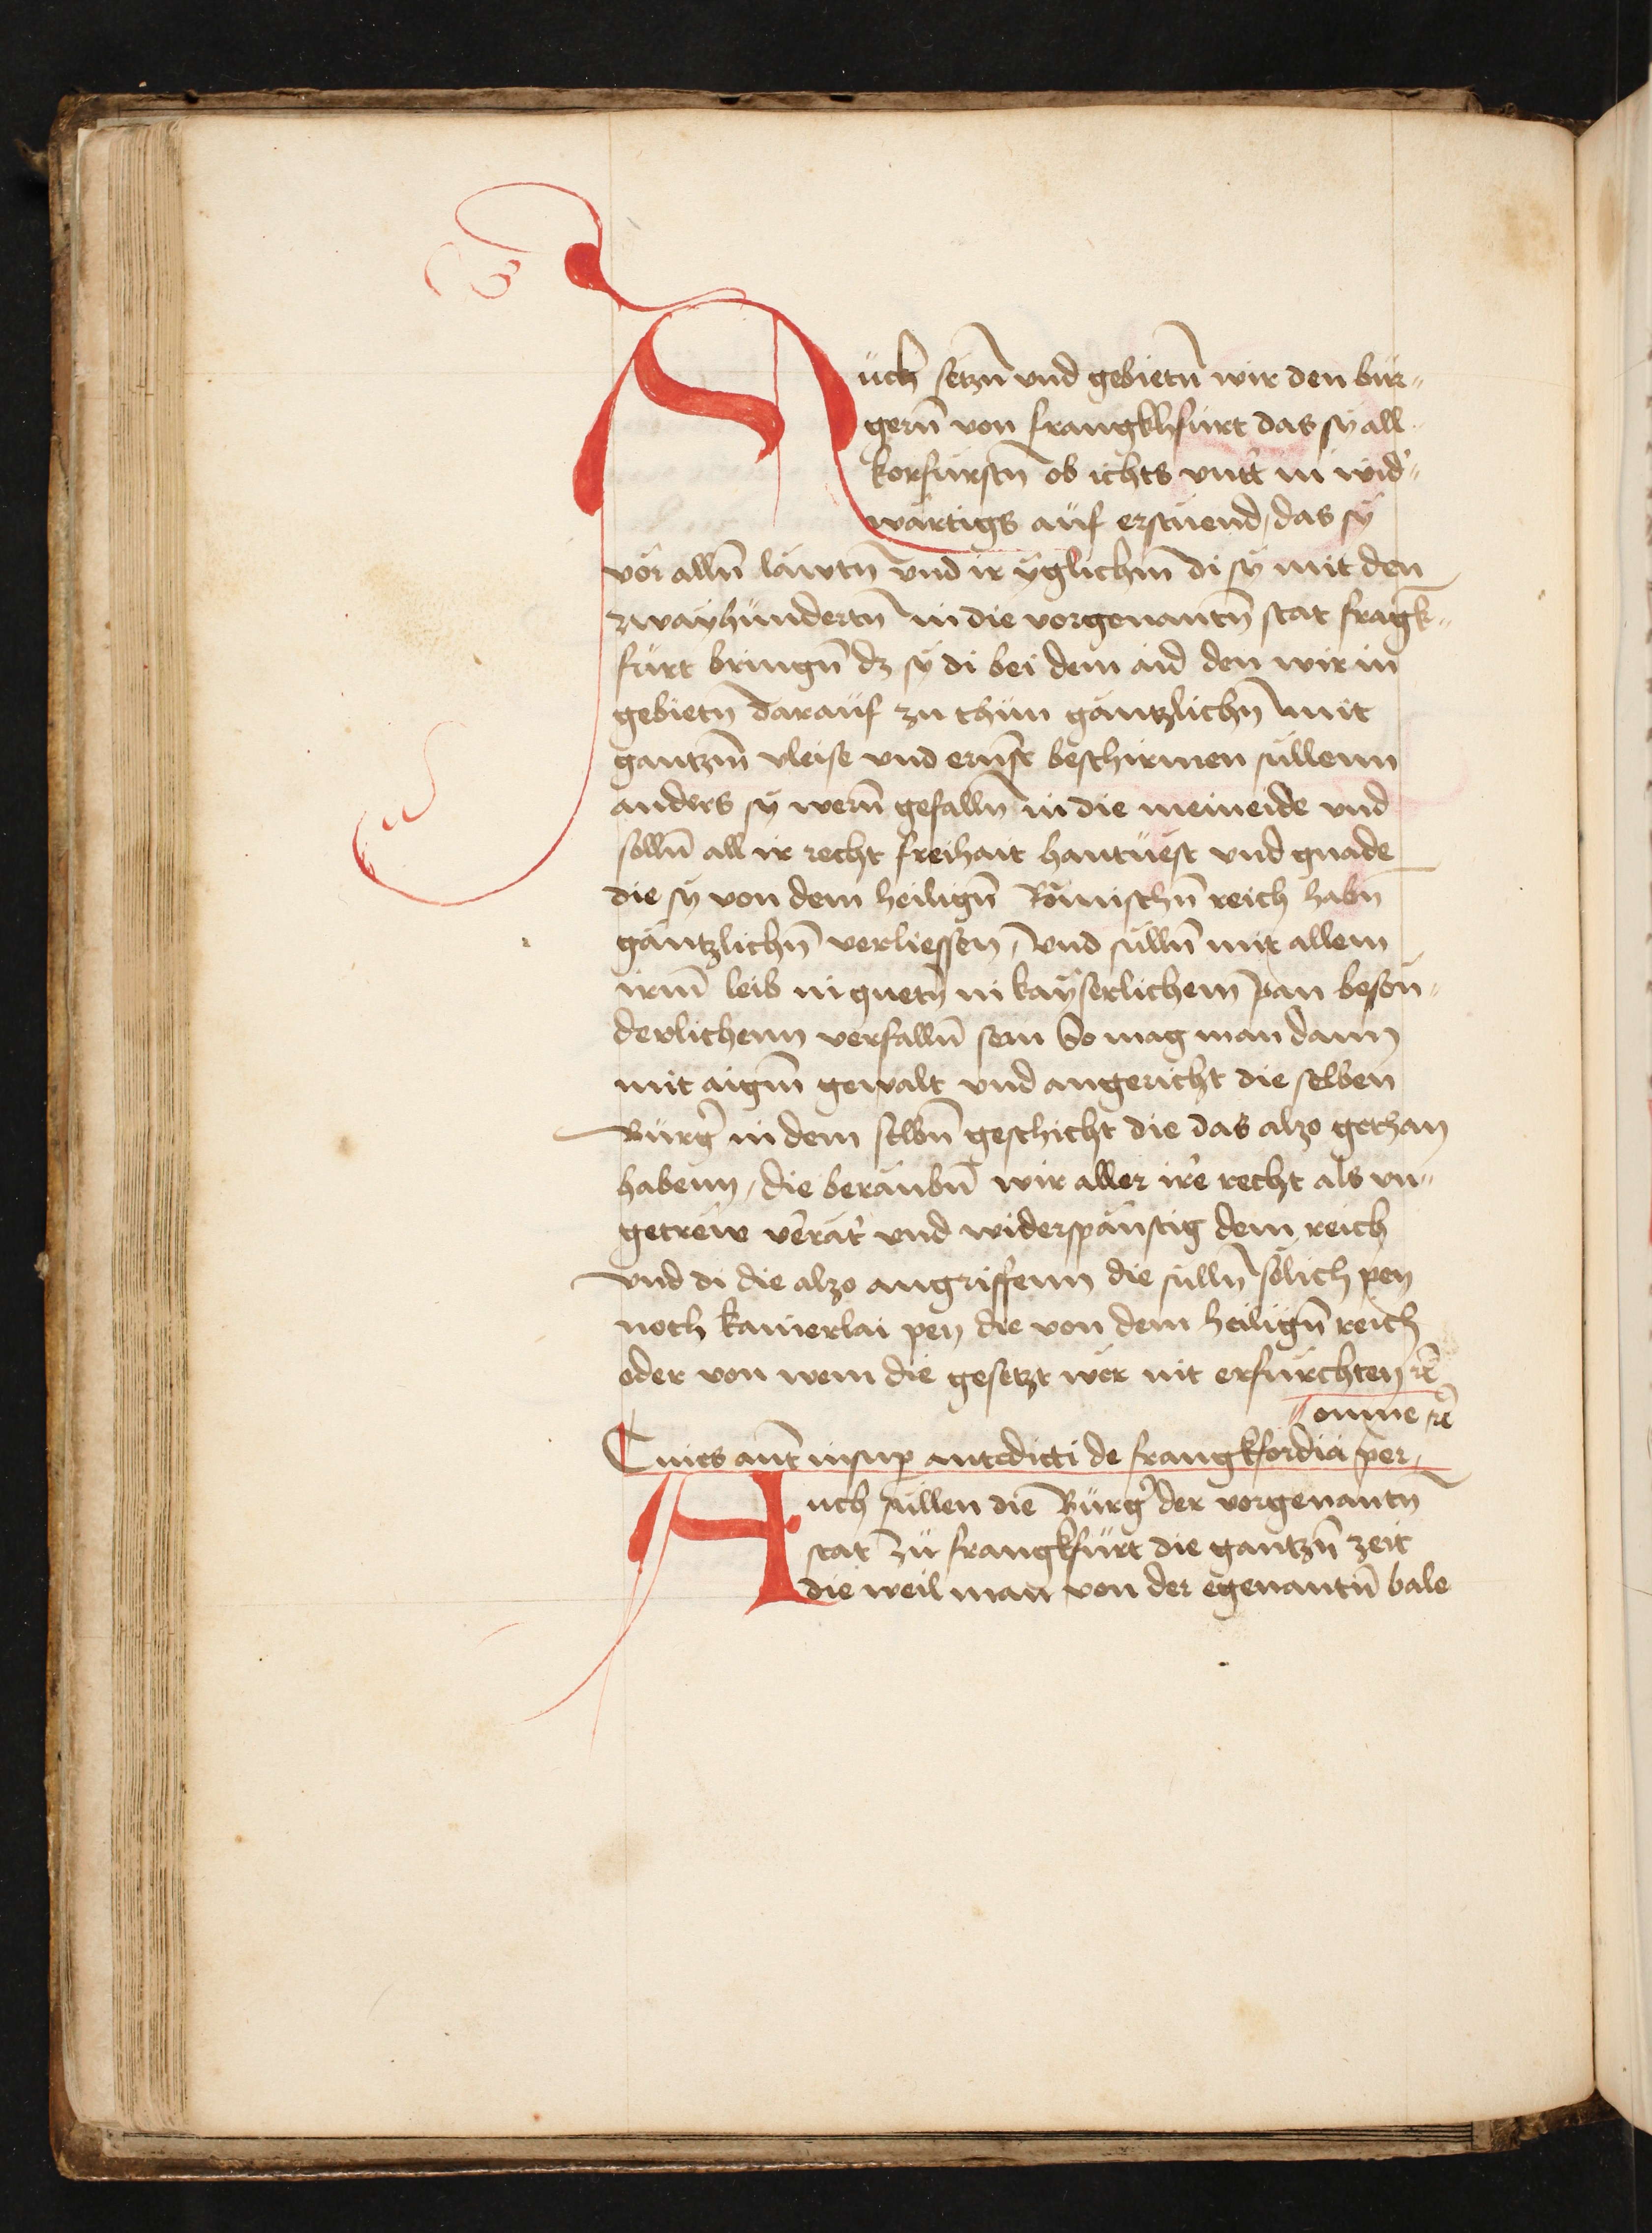 Auch setzn̄ vnd gebietn̄ wir den bur-
gern̄ von frangkhfurt das sy all
korfürstn̄ ob ichts vntt̕ in wid̕-
wärtigs auf erstuend, das sy
vor alln̄ läwtn̄ vnd ir yglichm̄ di sy mit den
zwayhundertn̄ in die vorgenantn̄ stat fragk-
furt bringn̄ dz sy di bei dem aid den wir in
gebietn̄ darauf zu thun gäntzlichn̄ mit
gantzm̄ vleise vnd ernst beschirmen sullenn
anders sy wern̄ gefalln̄ in die meineide vnd
solln̄ all ir recht freihait hantuest vnd gnade
die sy von dem heilign̄ Römischn̄ reich habn̄
gäntzlichn̄ verliessen, vnd sulln̄ mit allem
irm̄ leib in guetn̄ in kayserlichem pan beson-
derlichenn verfalln̄ sein So mag man dann
mit aigm̄ gewalt vnd angericht die selben
Burg̕ in dem selbn̄ geschicht die das alzo gethan
habenn, die beraubn̄ wir aller ire recht als vn-
getrew v̕rät̕ vnd widerspänstig dem reich
vnd di die alzo angriffenn die sulln̄ sölich pen
noch kainerlai pen die von dem heilign̄ reich
oder von wem die gesetzt wer nit erfürchten rc̄
omne rc̄
Ciues aut̄ insup antedicti de frangkfordia per
Auch sullen die Burg̕ der vorgenantn̄
stat zu frangkfurt die gantzn̄ zeit
die weil man von der egenantn̄ bale